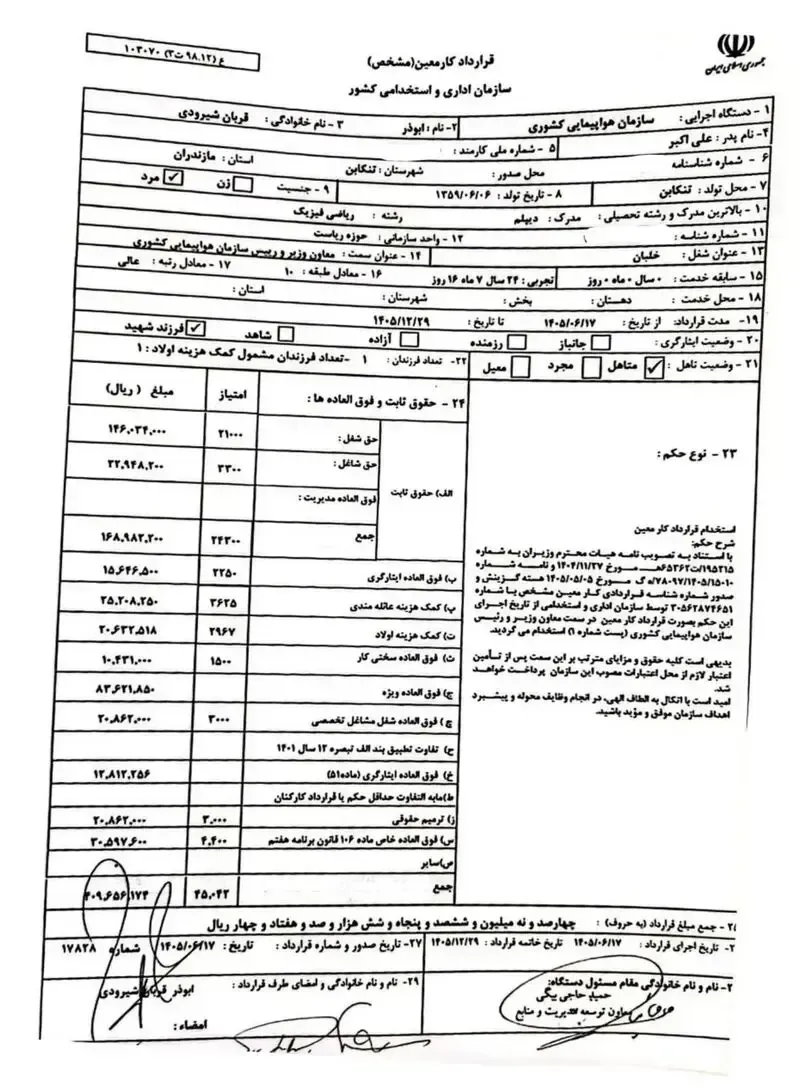 جمهوری اسلامی ایران
ع (۹۸.۱۲ ت۳) ۱۰۳۰۷۰
قرارداد کار معین(مشخص)
سازمان اداری و استخدامی کشور
۱ - دستگاه اجرایی : سازمان هواپیمایی کشوری ۲- نام : ابوذر ۳ - نام خانوادگی : قربان شیرودی
۴- نام پدر : علی اکبر ۵ - شماره ملی کارمند :
۶ - شماره شناسنامه محل صدور : شهرستان : تنکابن استان : مازندران
۷ - محل تولد : تنکابن ۸ - تاریخ تولد : ۱۳۵۹/۰۶/۰۶ ۹ - جنسیت زن مرد
۱۰ - بالاترین مدرک و رشته تحصیلی : مدرک : دیپلم رشته : ریاضی فیزیک
۱۱ - شماره شناسه : ۱۲ - واحد سازمانی : حوزه ریاست
۱۳ - عنوان شغل : خلبان ۱۴ - عنوان سمت : معاون وزیر و رییس سازمان هواپیمایی کشوری
۱۵ - سابقه خدمت : ۰ سال ۰ ماه ۰ روز تجربی : ۲۴ سال ۷ ماه ۱۶ روز ۱۶ - معادل طبقه : ۱۰ ۱۷ - معادل رتبه : عالی
۱۸ - محل خدمت : دهستان : بخش : شهرستان : استان :
۱۹- مدت قرارداد: از تاریخ : ۱۴۰۵/۰۶/۱۷ تا تاریخ : ۱۴۰۵/۱۲/۲۹
۲۰ - وضعیت ایثارگری : جانباز رزمنده آزاده شاهد فرزند شهید
۲۱ - وضعیت تاهل : متاهل مجرد معیل ۲۲- تعداد فرزندان : ۱ -تعداد فرزندان مشمول کمک هزینه اولاد : ۱
۲۳ - نوع حکم :
استخدام قرارداد کار معین
شرح حکم:
با استناد به تصویب نامه هیات محترم وزیران به شماره
۱۹۵۳۱۵/ت۶۵۳۶۲هـ مورخ ۱۴۰۴/۱۱/۲۷ و نامه شماره
۷۸۰۹۷/۱۴۰۵/۱۵۰۱۰/گ مورخ ۱۴۰۵/۰۵/۰۵ هسته گزینش و
صدور شماره شناسه قراردادی کار معین مشخص با شماره
۳۰۵۶۲۸۷۴۶۵۱ توسط سازمان اداری و استخدامی از تاریخ اجرای
این حکم بصورت قرارداد کار معین در سمت معاون وزیر و رئیس
سازمان هواپیمایی کشوری (پست شماره ۱) استخدام می گردید.
بدیهی است کلیه حقوق و مزایای مترتب بر این سمت پس از تأمین
اعتبار لازم از محل اعتبارات مصوب این سازمان پرداخت خواهد
شد.
امید است با اتکال به الطاف الهی، در انجام وظایف محوله و پیشبرد
اهداف سازمان موفق و مؤید باشید.
۲۴ - حقوق ثابت و فوق العاده ها : امتیاز مبلغ (ریال)
الف) حقوق ثابت
حق شغل : ۲۱۰۰۰ ۱۴۶,۰۳۴,۰۰۰
حق شاغل : ۳۳۰۰ ۲۲,۹۴۸,۲۰۰
فوق العاده مدیریت :
جمع ۲۴۳۰۰ ۱۶۸,۹۸۲,۲۰۰
ب) فوق العاده ایثارگری ۲۲۵۰ ۱۵,۶۴۶,۵۰۰
پ) کمک هزینه عائله مندی ۳۶۲۵ ۲۵,۲۰۸,۲۵۰
ت) کمک هزینه اولاد ۲۹۶۷ ۲۰,۶۳۲,۵۱۸
ث) فوق العاده سختی کار ۱۵۰۰ ۱۰,۴۳۱,۰۰۰
ج) فوق العاده ویژه ۸۳,۶۲۱,۸۵۰
چ) فوق العاده شغل مشاغل تخصصی ۳۰۰۰ ۲۰,۸۶۲,۰۰۰
ح) تفاوت تطبیق بند الف تبصره ۱۲ سال ۱۴۰۱
خ) فوق العاده ایثارگری (ماده۵۱) ۱۲,۸۱۲,۲۵۶
ط)مابه التفاوت حداقل حکم یا قرارداد کارکنان
ز) ترمیم حقوقی ۳,۰۰۰ ۲۰,۸۶۲,۰۰۰
س) فوق العاده خاص ماده ۱۰۶ قانون برنامه هفتم ۴,۴۰۰ ۳۰,۵۹۷,۶۰۰
ص)سایر
جمع ۴۵,۰۴۲ ۴۰۹,۶۵۶,۱۷۴
- جمع مبلغ قرارداد (به حروف) : چهارصد و نه میلیون و ششصد و پنجاه و شش هزار و صد و هفتاد و چهار ریال
تاریخ اجرای قرارداد : ۱۴۰۵/۰۶/۱۷ تاریخ خاتمه قرارداد : ۱۴۰۵/۱۲/۲۹ ۲۷- تاریخ صدور و شماره قرارداد : تاریخ : ۱۴۰۵/۰۶/۱۷ شماره ۱۷۸۲۸
- نام و نام خانوادگی مقام مسئول دستگاه:
حمید حاجی بیگی
معاون توسعه مدیریت و منابع
۲۹- نام و نام خانوادگی و امضای طرف قرارداد : ابوذر قربان شیرودی
امضاء :